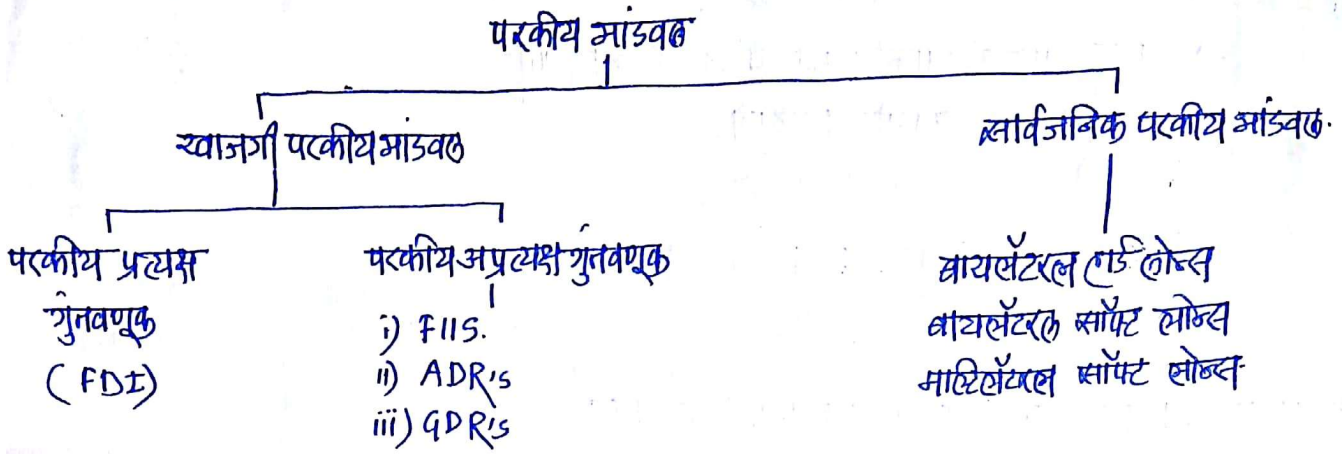 परकीय भांडवल
खाजगी परकीय भांडवल
सार्वजनिक परकीय भांडवल.
परकीय प्रत्यक्ष
गुंतवणूक
(FDI)
परकीय अप्रत्यक्ष गुंतवणूक
i) FIIS.
ii) ADR's
iii) GDR's
बायलॅटरल हार्ड लोन्स
बायलॅटरल सॉफ्ट लोन्स
मल्टिलॅटरल सॉफ्ट लोन्स